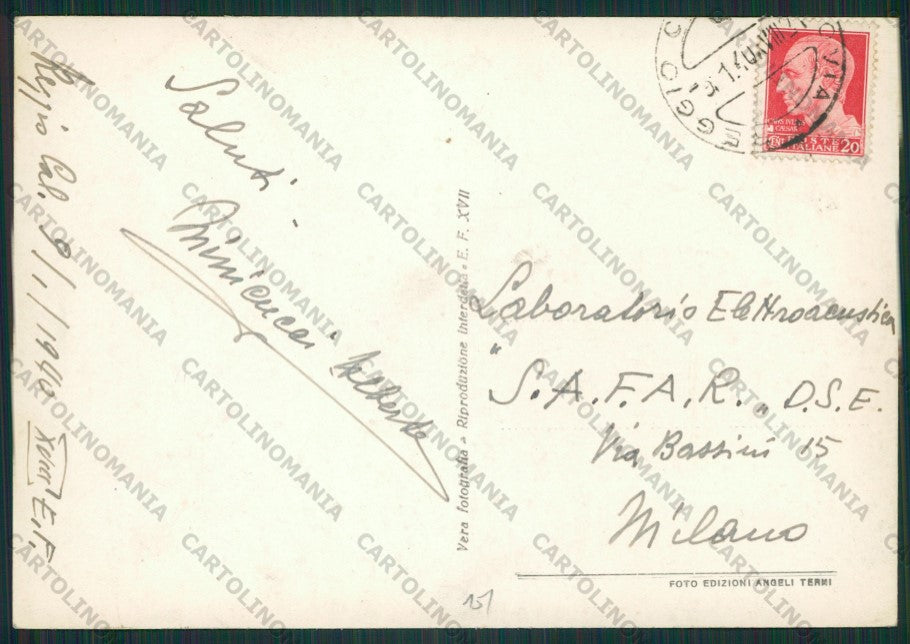 Reggio Cal. 9/1/1940 XVIII E.F.
Saluti
Minicucci Alberto
Vera fotografia - Riproduzione interdetta - E. F. XVII
CENT. 20
Laboratorio Elettroacustica
"S.A.F.A.R." D.S.E.
Via Bassini 15
Milano
FOTO EDIZIONI ANGELI TERMI
15/
CARTOLINOMANIA